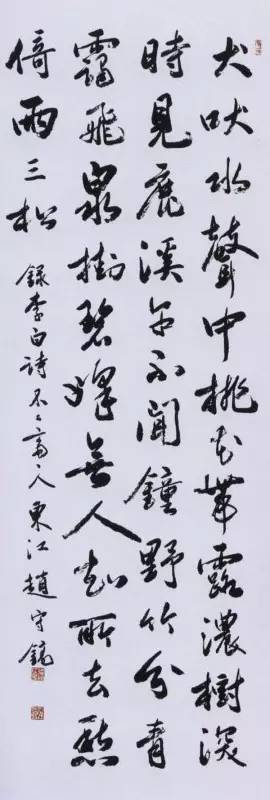 犬吠水聲中桃花帶露濃樹深
時見鹿溪午不聞鐘野竹分青
靄飛泉掛碧峰無人知所去愁
倚兩三松
錄李白詩不々齋人東江趙守鏡